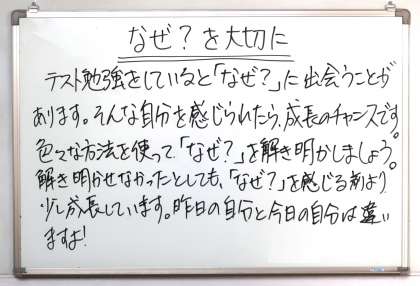 なぜ？を大切に
テスト勉強をしていると「なぜ？」に出会うことが
あります。そんな自分を感じられたら、成長のチャンスです。
色々な方法を使って「なぜ？」を解き明かしましょう。
解き明かせなかったとしても、「なぜ？」を感じる前より
少し成長しています。昨日の自分と今日の自分は違い
ますよ！